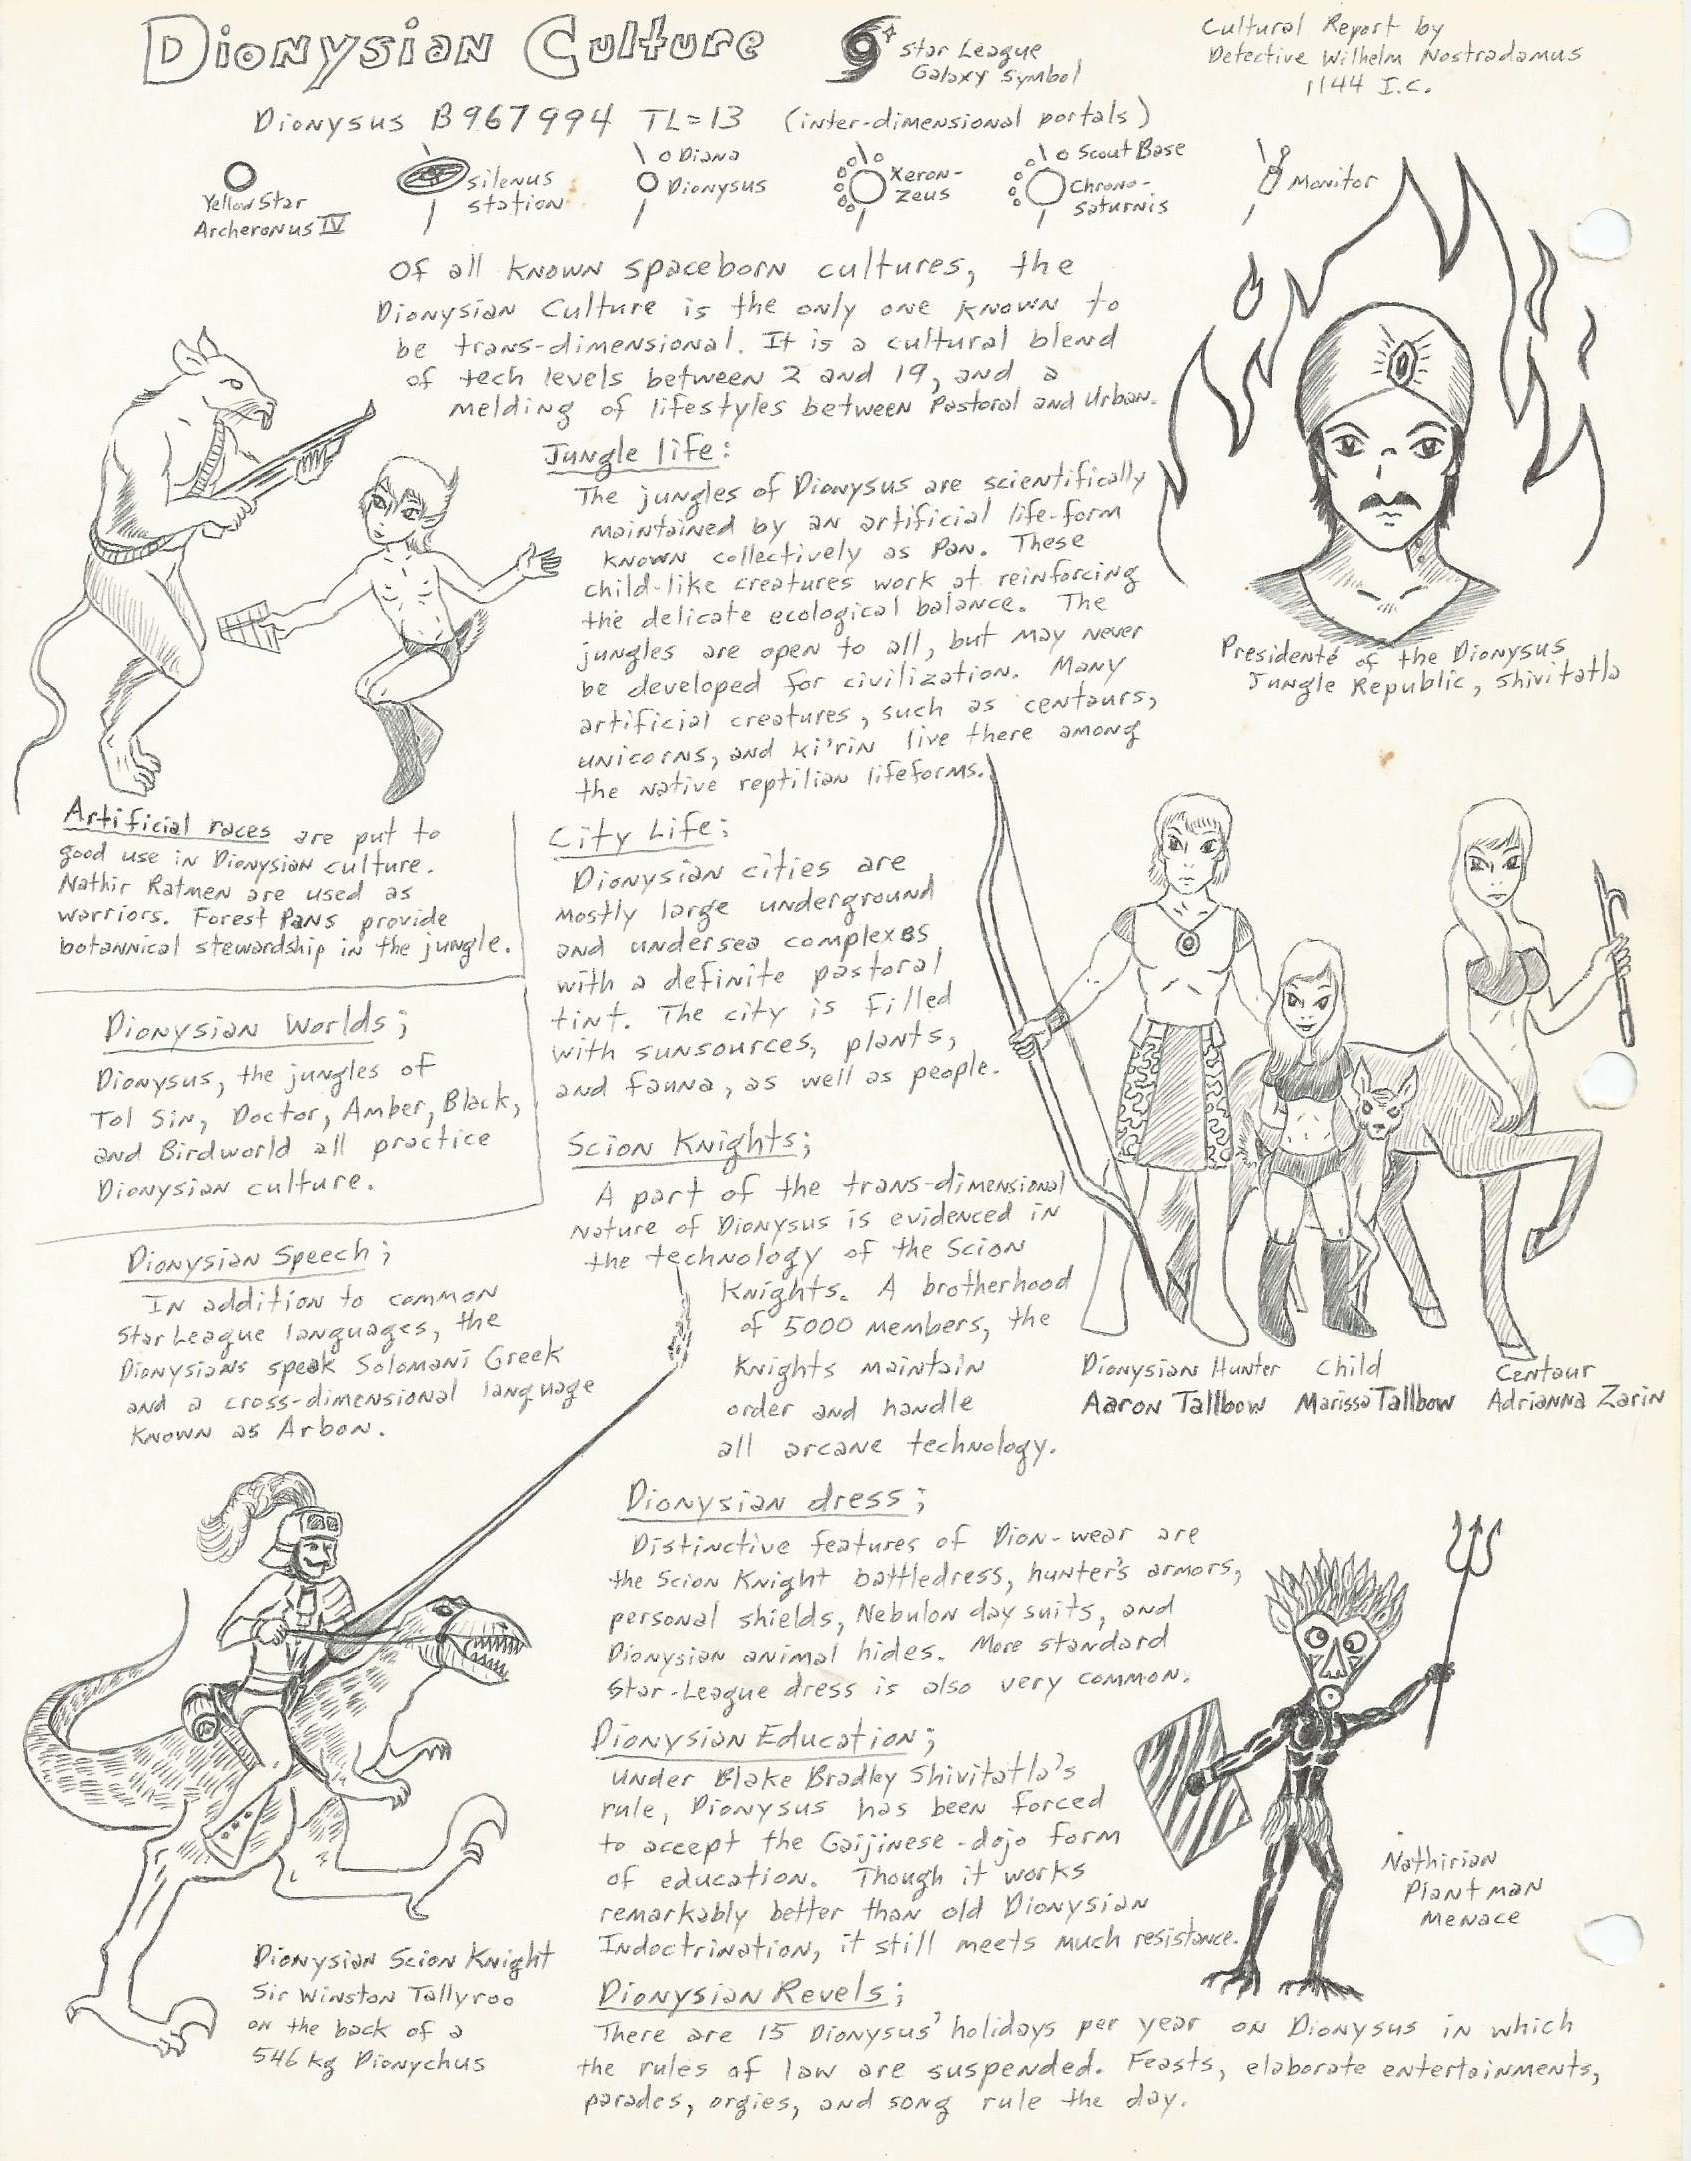 Dionysian Culture
Star League
Galaxy Symbol
Cultural Report by
Detective Wilhelm Nostradamus
1144 I.C.
Dionysus B967994 TL=13 (inter-dimensional portals)
Yellow Star
Archeronus IV
Silenus
station
Diana
Dionysus
Xeron-
Zeus
Scout Base
Chrono-
Saturnis
Monitor
Of all known spaceborn cultures, the
Dionysian Culture is the only one known to
be trans-dimensional. It is a cultural blend
of tech levels between 2 and 19, and a
melding of lifestyles between Pastoral and Urban.
Jungle life:
The jungles of Dionysus are scientifically
maintained by an artificial life-form
known collectively as Pan. These
child-like creatures work at reinforcing
the delicate ecological balance. The
jungles are open to all, but may never
be developed for civilization. Many
artificial creatures, such as centaurs,
unicorns, and ki'rin live there among
the native reptilian lifeforms.
Presidenté of the Dionysus
Jungle Republic, Shivitatla
Artificial races are put to
good use in Dionysian culture.
Nathir Ratmen are used as
warriors. Forest Pans provide
botannical stewardship in the jungle.
Dionysian Worlds;
Dionysus, the jungles of
Tol Sin, Doctor, Amber, Black,
and Birdworld all practice
Dionysian culture.
Dionysian Speech;
In addition to common
Star League languages, the
Dionysians speak Solomani Greek
and a cross-dimensional language
known as Arbon.
City Life:
Dionysian cities are
mostly large underground
and undersea complexes
with a definite pastoral
tint. The city is filled
with sunsources, plants,
and fauna, as well as people.
Scion Knights;
A part of the trans-dimensional
nature of Dionysus is evidenced in
the technology of the Scion
Knights. A brotherhood
of 5000 members, the
Knights maintain
order and handle
all arcane technology.
Dionysian Hunter
Aaron Tallbow
Child
Marissa Tallbow
Centaur
Adrianna Zarin
Dionysian dress;
Distinctive features of Dion-wear are
the Scion Knight battledress, hunter's armors,
personal shields, Nebulon day suits, and
Dionysian animal hides. More standard
Star-League dress is also very common.
Dionysian Education;
Under Blake Bradley Shivitatla's
rule, Dionysus has been forced
to accept the Gaijinese-dojo form
of education. Though it works
remarkably better than old Dionysian
Indoctrination, it still meets much resistance.
Nathirian
Plantman
Menace
Dionysian Scion Knight
Sir Winston Tallyroo
on the back of a
546 kg Dionychus
Dionysian Revels;
There are 15 Dionysus' holidays per year on Dionysus in which
the rules of law are suspended. Feasts, elaborate entertainments,
parades, orgies, and song rule the day.